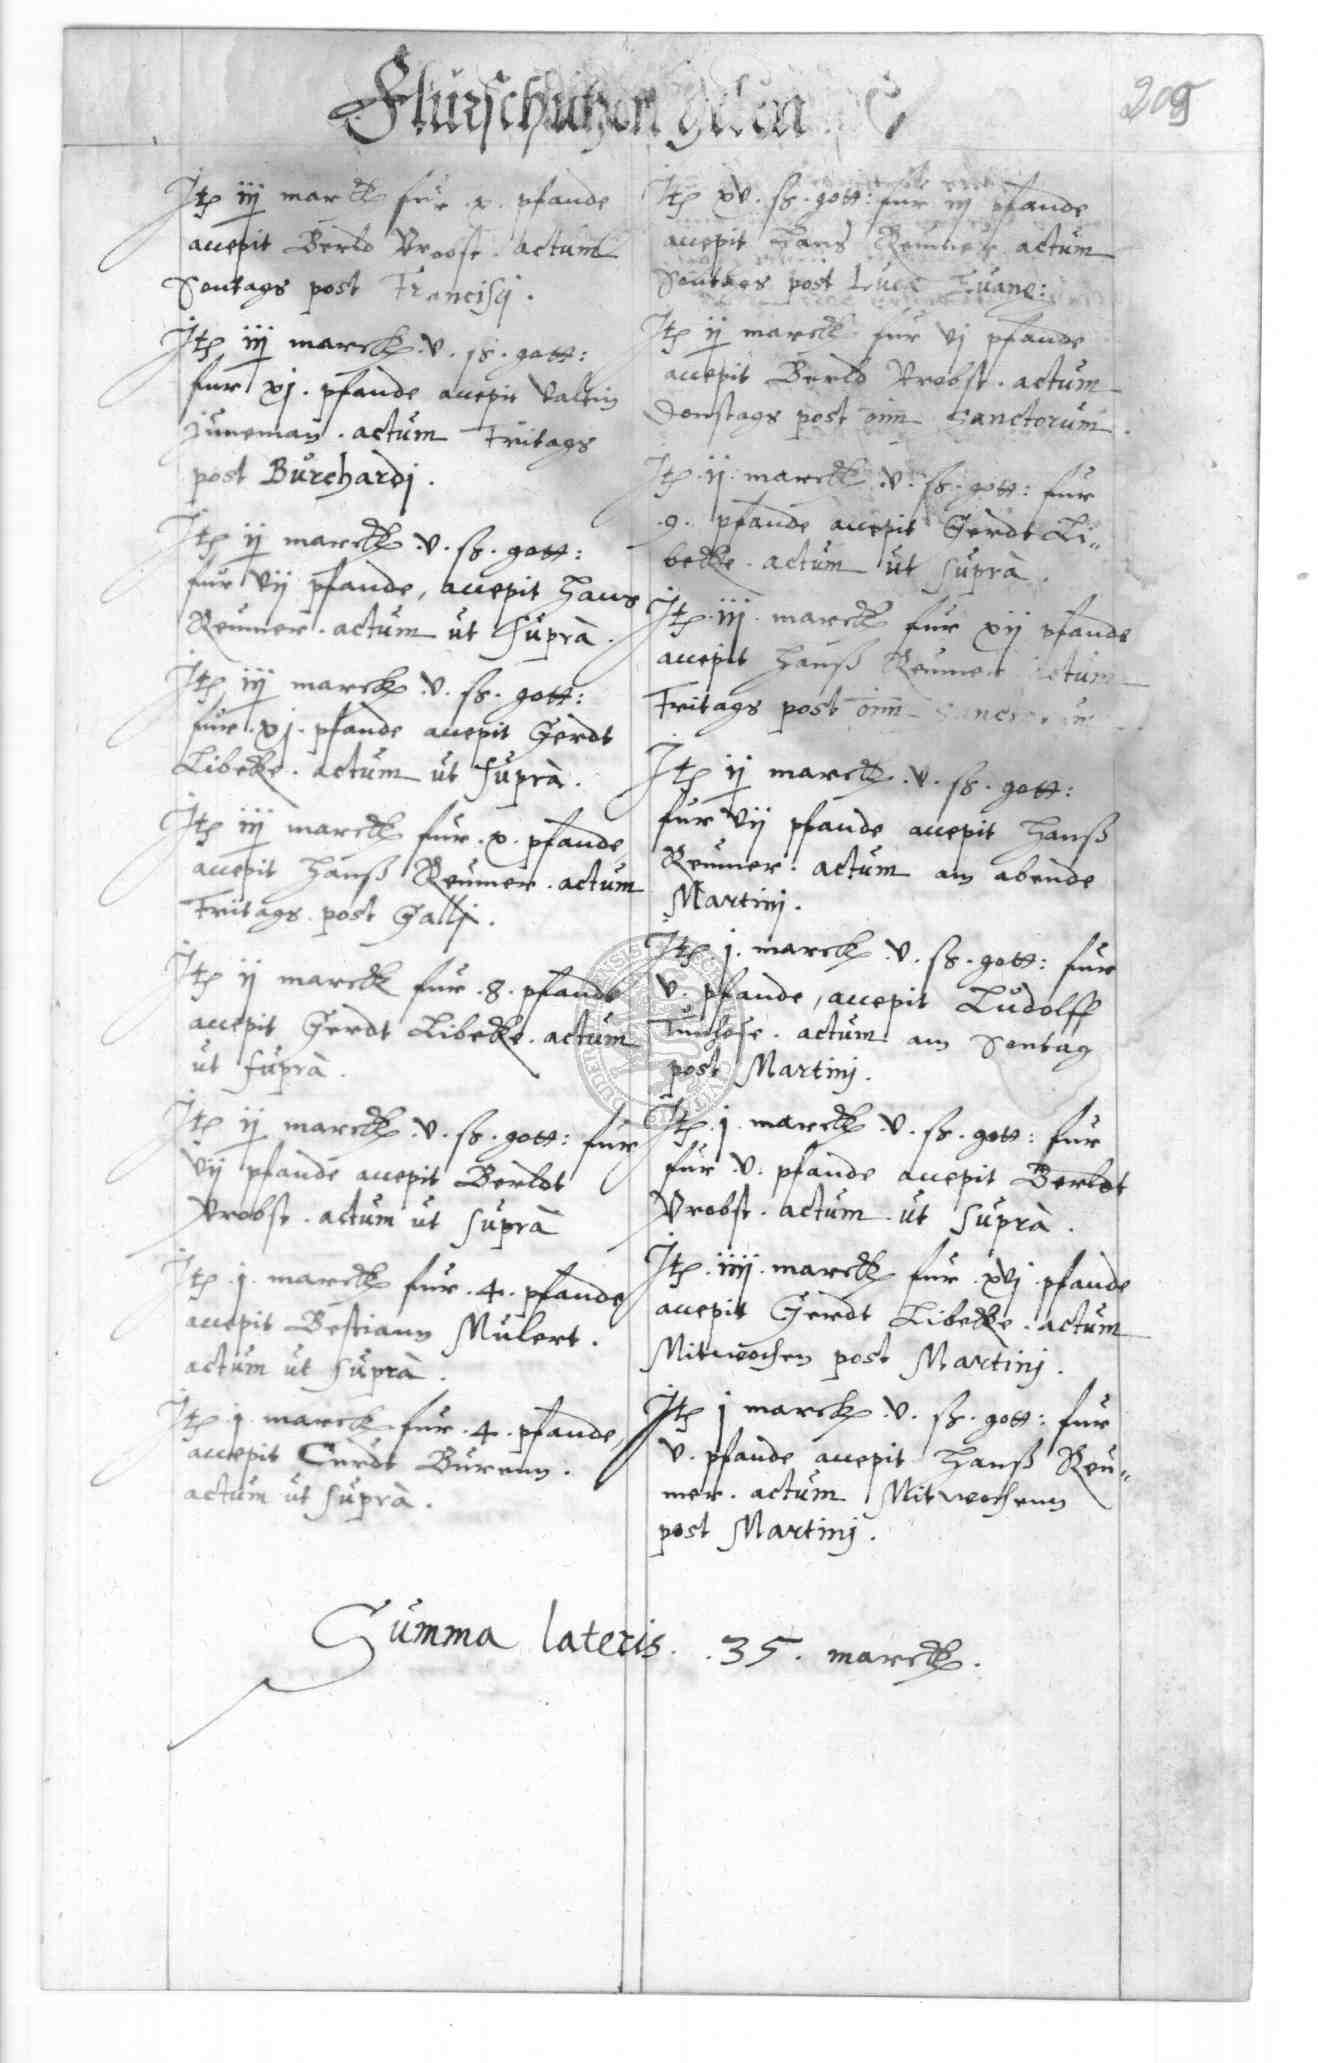 Flurschutzen geben
209
Itē iij marck fur .x. pfande
accepit Berld Probst . actum
Sontags post Francisci .
Itē iij marck .v. ß . gott:
fur xj . pfande accepit Valtin
Juneman . actum Fritags
post Burchardj .
Itē ij marck .v. ß . gott:
fur vij pfande , accepit Hans
Reumer . actum ut suprà .
Itē iij marck .v. ß . gott:
fur .xj. pfande accepit Gerdt
Libecke . actum ut suprà .
Itē iij marck fur .x. pfande
accepit Hanß Reumer . actum
Fritags post Gallj .
Itē ij marck fur .8. pfande
accepit Gerdt Libecke . actum
ut suprà .
Itē ij marck .v. ß . gott: fur
vij pfande accepit Berldt
Probst . actum ut suprà
Itē .j. marck fur .4. pfande
accepit Bestiann Mulert .
actum ut suprà .
Itē j marck fur .4. pfande,
accepit Curdt Burenn .
actum ut suprà .
Itē xv . ß . gott: fur iij pfande
accepit Hans Reumer actum
Sontags post Luce Euang:
Itē ij marck fur vj pfande
accepit Berld Probst . actum
Donstags post om̄ Sanctorum .
Itē .ij. marck .v. ß . gott: fur
.9. pfande accepit Gerdt Li=
becke . actum ut suprà .
Itē .iij. marck fur xij pfande
accepit Hanß Reumer actum
Fritags post om̄ Sanctorum
Itē ij marck .v. ß . gott:
fur vij pfande accepit Hanß
Reumer . actum am abende
Martinj .
Itē .j. marck .v. ß . gott: fur
v . pfande , accepit Ludolff
actum am Sontag
post Martinj .
Itē .j. marck .v. ß . gott: fur
fur .v. pfande accepit Berldt
Probst . actum . ut suprà .
Itē .iiij. marck fur .xvj. pfande
accepit Gerdt Libecke . actum
Mitwochen post Martinj .
Itē j marck .v. ß . gott: fur
v . pfande accepit Hanß Reu=
mer . actum Mitwochenn
post Martinj .
Summa lateris . .35. marck .